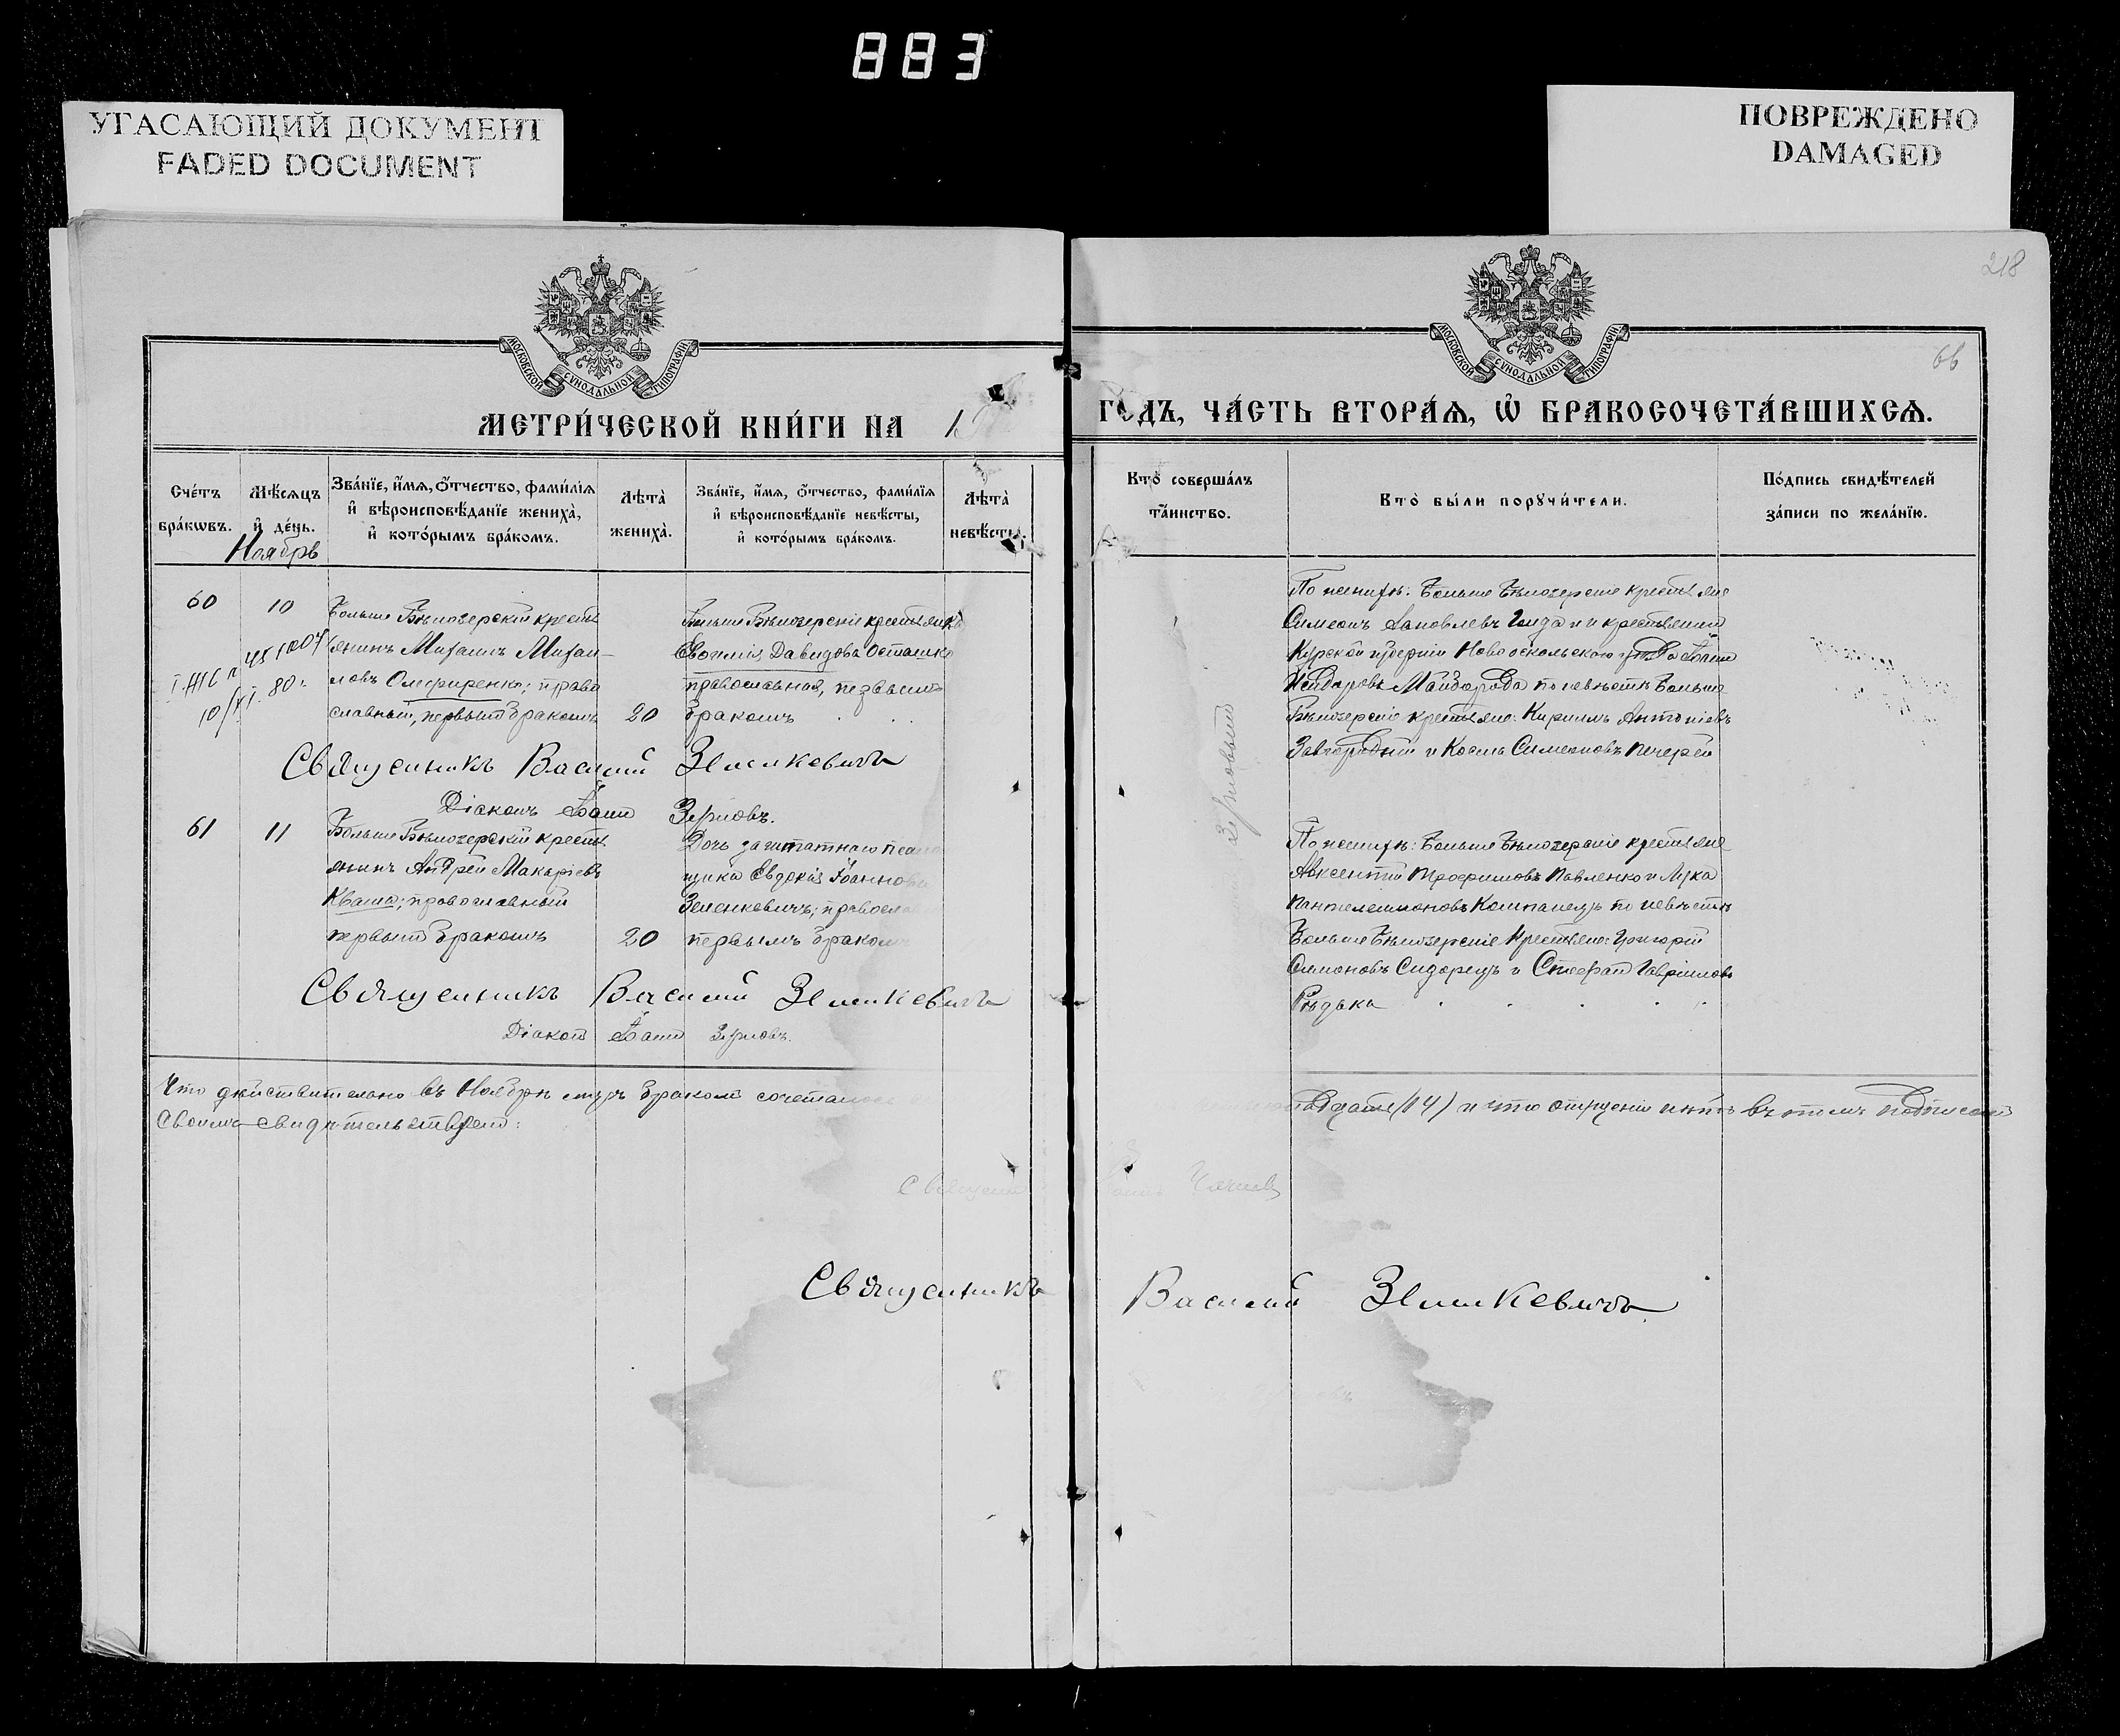 883
УГАСАЮЩИЙ ДОКУМЕНТ
FADED DOCUMENT
ПОВРЕЖДЕНО
DAMAGED
218
66
МОСКОВСКОЙ СѴНОДАЛЬНОЙ ТИПОГРАФІИ
МЕТРИ́ЧЕСКОЙ КНИ́ГИ НА 1
МОСКОВСКОЙ СѴНОДАЛЬНОЙ ТИПОГРАФІИ
ГОДЪ, ЧА́СТЬ ВТОРА́Ѧ, Ѡ҆ БРАКОСОЧЕТА́ВШИХСѦ.
Сче́тъ
бра́кωвъ.
Мѣ́сѧцъ
и҆ де́нь.
Зва́нїе, и҆́мѧ, о҆́тчество, фами́лїѧ
и҆ вѣроисповѣ́данїе жениха̀,
и҆ кото́рымъ бра́комъ.
Лѣта̀
жениха̀.
Зва́нїе, и҆́мѧ, о҆́тчество, фами́лїѧ
и҆ вѣроисповѣ́данїе невѣ́сты,
и҆ кото́рымъ бра́комъ.
Лѣта̀
невѣ́сты.
Кто̀ соверша́лъ
та́инство.
Кто̀ бы́ли порꙋчи́тели.
По́дпись свидѣ́телей
за́писи по жела́нїю.
Ноябрь
60
10
Больше Бѣлозерскій кресть
янинъ Михаилъ Михаи-
ловъ Олефиренко; право
славный, первымъ бракомъ
20
Больше Бѣлозерскіе крестьянка
Евфимія Давидова Осташко
православная, первымъ
бракомъ
По женихѣ: Больше Бѣлозерскіе крестьяне
Симеонъ Яковлевъ и крестьянинъ
Курской губерніи Новооскольскаго уѣзда Іоаннъ
по невѣстѣ Больше
Бѣлозерскіе крестьяне: Кириллъ Антоніевъ
Завгородній и Косма Симеоновъ Печерей
Священникъ Василій Зенкевичъ
Діаконъ Іоаннъ Зерновъ.
61
11
Больше Бѣлозерскій кресть
янинъ Андрей Макаріевъ
Кваша; православный
первымъ бракомъ
20
Дочь заштатнаго псалом
щика Евдокія Іоаннова
Зеленкевичъ; православ
первымъ бракомъ
По женихѣ: Больше Бѣлозерскіе крестьяне
Авксентій Трофимовъ Павленко и Лука
Пантелеимоновъ Компанецъ по невѣстѣ
Больше Бѣлозерскіе крестьяне: Григорій
Симоновъ Сидорецъ и Стефанъ Гавріиловъ
Рѣдька
Священникъ Василій Зенкевичъ
Діаконъ Іоаннъ Зерновъ.
Что дѣйствительно въ Ноябрѣ мцѣ бракомъ сочеталось
(14) и что опущенія нѣтъ въ томъ подписомъ
своимъ свидѣтельствуемъ:
Священникъ Василій Зенкевичъ